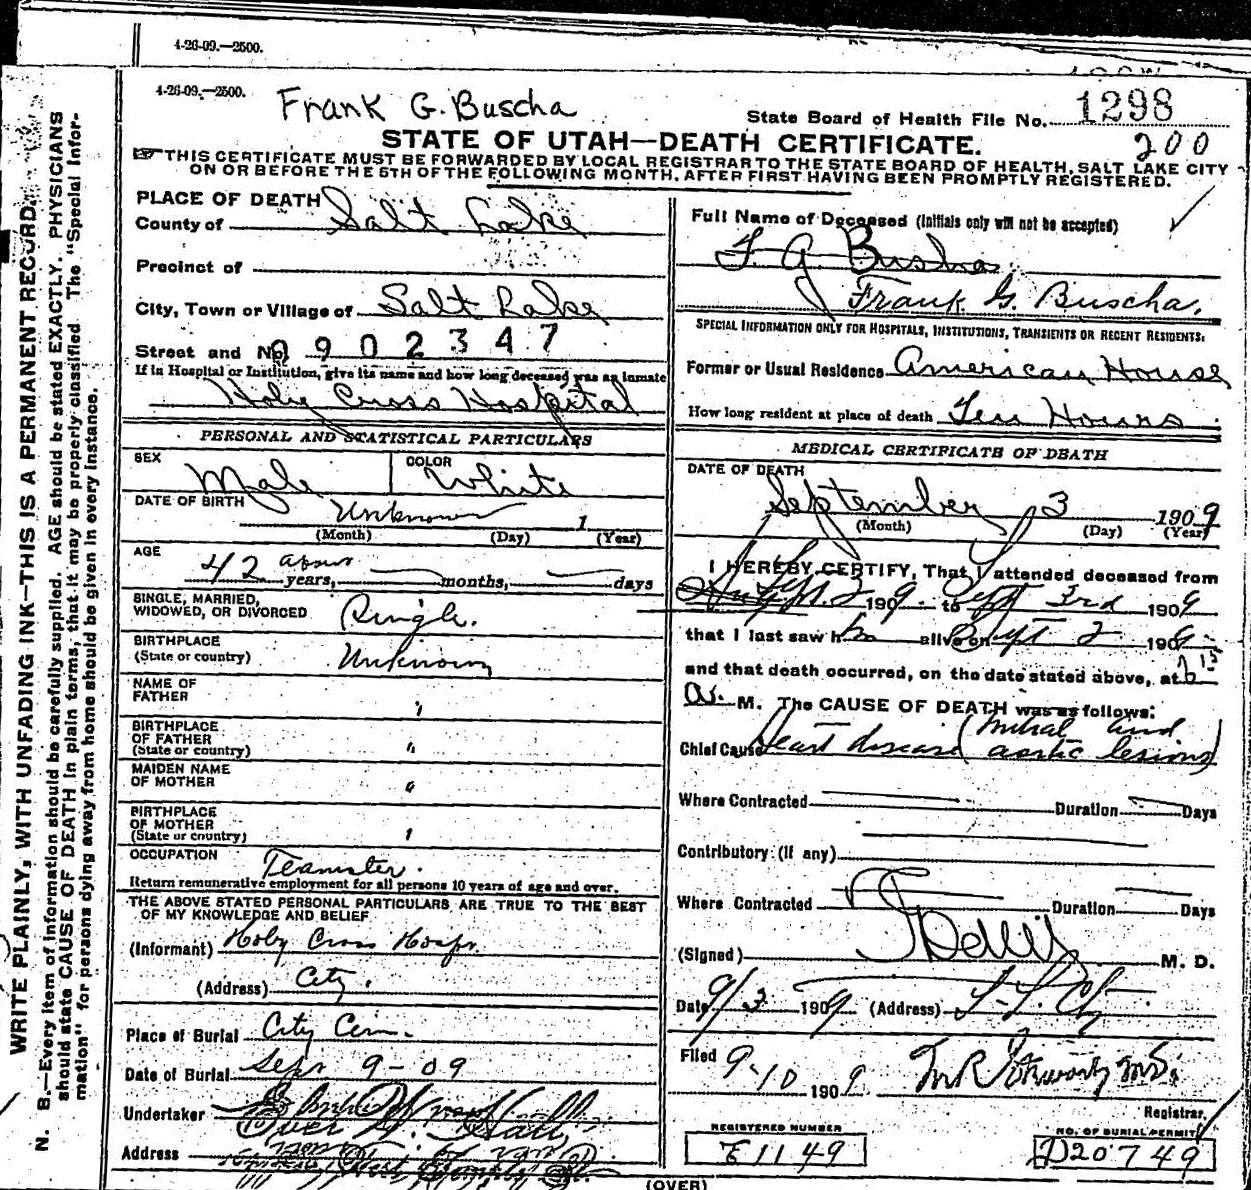 4-26-09.—2500.
4-26-09.—2500.
Frank G. Buscha
State Board of Health File No. 1298
STATE OF UTAH—DEATH CERTIFICATE.
200
THIS CERTIFICATE MUST BE FORWARDED BY LOCAL REGISTRAR TO THE STATE BOARD OF HEALTH, SALT LAKE CITY
ON OR BEFORE THE 5TH OF THE FOLLOWING MONTH, AFTER FIRST HAVING BEEN PROMPTLY REGISTERED.
WRITE PLAINLY, WITH UNFADING INK—THIS IS A PERMANENT RECORD.
N. B.—Every item of information should be carefully supplied. AGE should be stated EXACTLY. PHYSICIANS
should state CAUSE OF DEATH in plain terms, that it may be properly classified. The "Special Infor-
mation" for persons dying away from home should be given in every instance.
PLACE OF DEATH
County of Salt Lake
Precinct of
City, Town or Village of Salt Lake
Street and No. 0902347
If in Hospital or Institution, give its name and how long deceased was an inmate
Holy Cross Hospital
PERSONAL AND STATISTICAL PARTICULARS
SEX Male COLOR White
DATE OF BIRTH Unknown 1
(Month) (Day) (Year)
AGE
42 about years, months, days
SINGLE, MARRIED,
WIDOWED, OR DIVORCED Single.
BIRTHPLACE
(State or country) Unknown
NAME OF
FATHER "
BIRTHPLACE
OF FATHER
(State or country) "
MAIDEN NAME
OF MOTHER "
BIRTHPLACE
OF MOTHER
(State or country) "
OCCUPATION Teamster.
Return remunerative employment for all persons 10 years of age and over.
THE ABOVE STATED PERSONAL PARTICULARS ARE TRUE TO THE BEST
OF MY KNOWLEDGE AND BELIEF
(Informant) Holy Cross Hosp.
(Address) City.
Place of Burial City Cem.
Date of Burial Sep 9-09
Undertaker
Address
Full Name of Deceased (Initials only will not be accepted)
F. G. Buscha
Frank G. Buscha.
SPECIAL INFORMATION ONLY FOR HOSPITALS, INSTITUTIONS, TRANSIENTS OR RECENT RESIDENTS:
Former or Usual Residence American House
How long resident at place of death Ten Hours
MEDICAL CERTIFICATE OF DEATH
DATE OF DEATH
September 3 1909
(Month) (Day) (Year)
I HEREBY CERTIFY, That I attended deceased from
Sept. 2 1909. to Sept 3rd 1909
that I last saw h alive on Sept 2 1909
and that death occurred, on the date stated above, at 6 15
a. M. The CAUSE OF DEATH was as follows:
Chief Cause Heart disease (mitral and
aortic lesions)
Where Contracted Duration Days
Contributory (If any)
Where Contracted Duration Days
(Signed) M. D.
Date 9/3 1909 (Address) S. L. City
Filed 9-10 1909
Registrar.
REGISTERED NUMBER
E1149
NO. OF BURIAL PERMIT
D20749
(OVER)